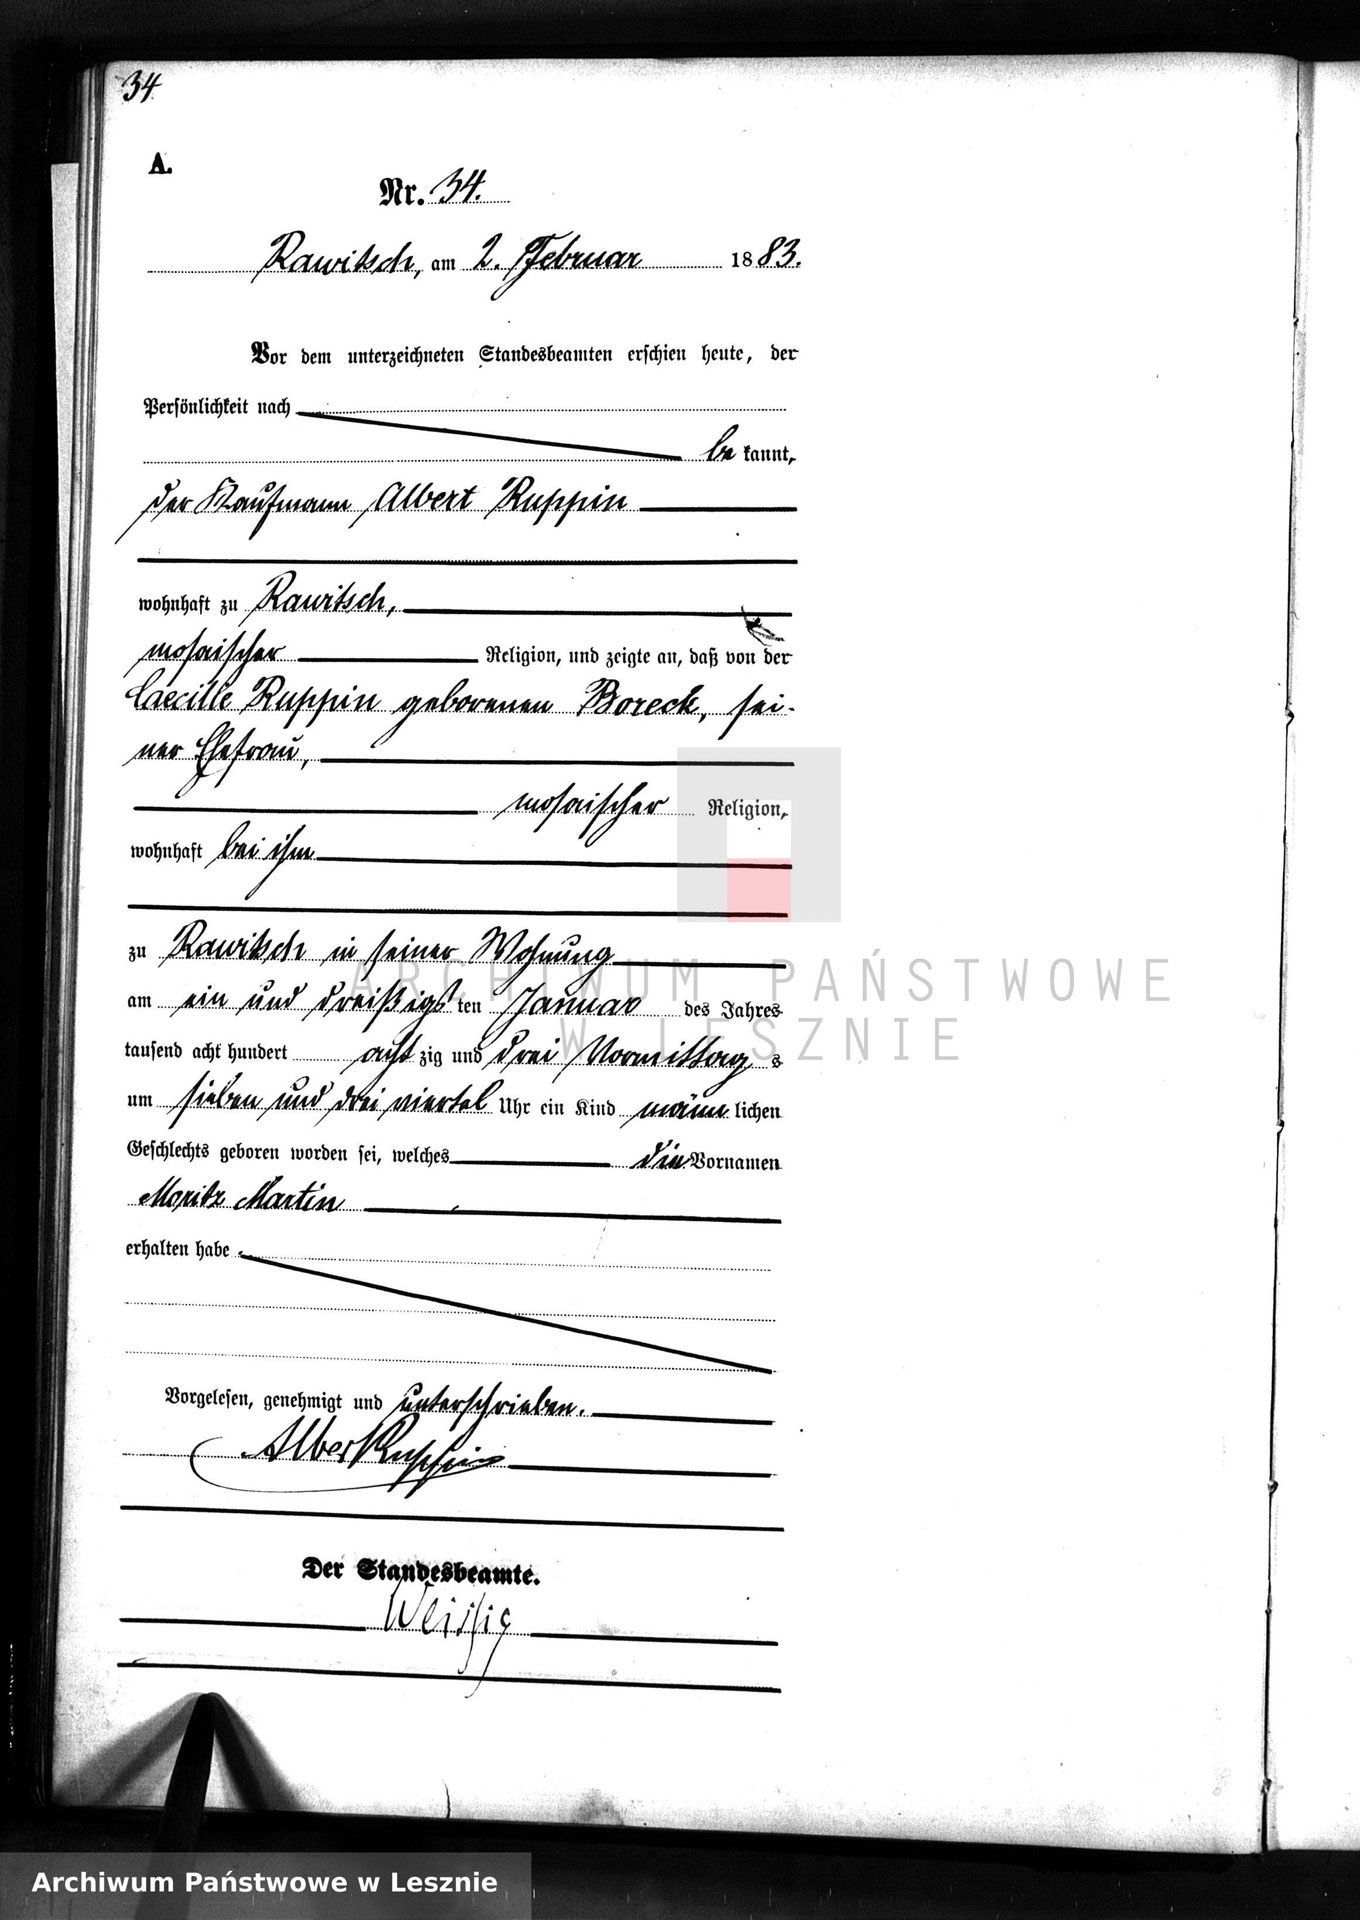 34
A.
Nr. 34.
Rawitsch, am 2. Februar 1883.
Vor dem unterzeichneten Standesbeamten erschien heute, der
Persönlichkeit nach
be kannt,
der Kaufmann Albert Ruppin
wohnhaft zu Rawitsch,
mosaischer Religion, und zeigte an, daß von der
Caecilie Ruppin geborenen Boreck, sei-
ner Ehefrau,
mosaischer Religion,
wohnhaft bei ihm
zu Rawitsch in seiner Wohnung
am ein und dreißigst ten Januar des Jahres
tausend acht hundert acht zig und drei Vormittag s
um sieben und drei viertel Uhr ein Kind männ lichen
Geschlechts geboren worden sei, welches die Vornamen
Moritz Martin
erhalten habe.
Vorgelesen, genehmigt und unterschrieben.
Albert Ruppin
Der Standesbeamte.
Weissig
ARCHIWUM PAŃSTWOWE
W LESZNIE
Archiwum Państwowe w Lesznie